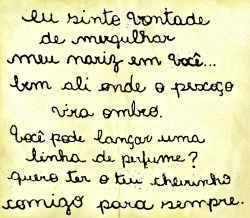 eu sinto vontade
de mergulhar
meu nariz em você...
bem ali onde o pescoço
vira ombro.
Você pode lançar uma
linha de perfume?
quero ter o teu cheirinho
comigo para sempre.